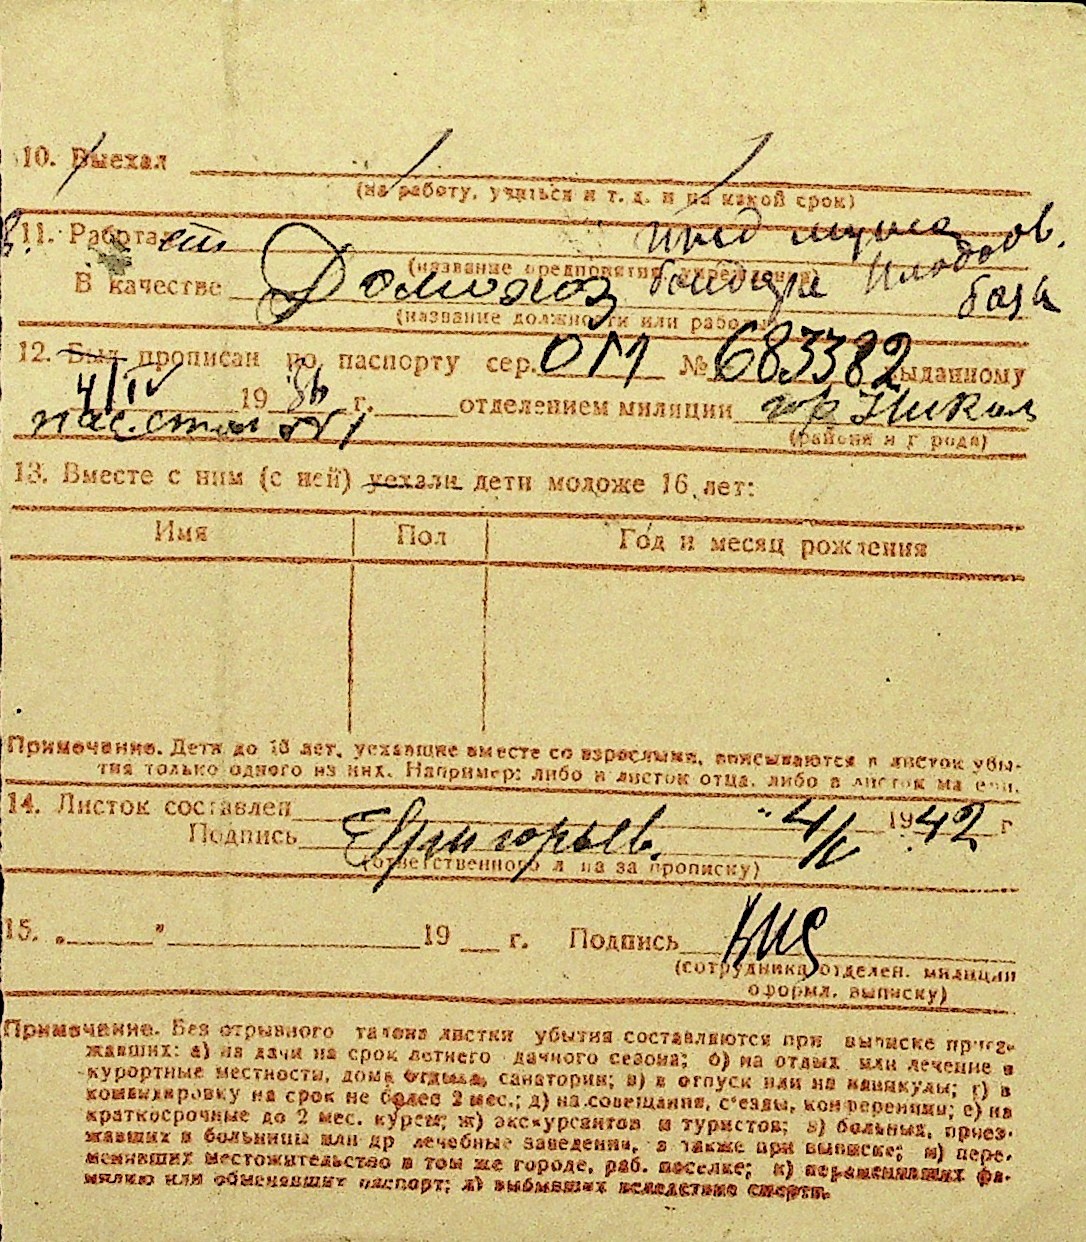 10. Выехал
(на работу, учиться и т. д. и на какой срок)
11. Работал
(название предприятия, учреждения)
В качестве Домохоз
база
(название должности или работы)
12. Был прописан по паспорту сер. ОМ № 683382 выданному
4/IV 19 36 г. отделением милиции гор Никол
пас. стол №1
(района и города)
13. Вместе с ним (с ней) уехали дети моложе 16 лет:
Имя Пол Год и месяц рождения
Примечание. Дети до 16 лет, уехавшие вместе со взрослыми, вписываются в листок убы-
тия только одного из них. Например: либо в листок отца, либо в листок матери.
14. Листок составлен 4/V 1942 г
Подпись Григорьев.
(ответственного лица за прописку)
15. „ " 19 г. Подпись
(сотрудника отделен. милиции
оформл. выписку)
Примечание. Без отрывного талона листки убытия составляются при выписке приез-
жавших: а) на дачи на срок летнего дачного сезона; б) на отдых или лечение в
курортные местности, дома отдыха, санатории; в) в отпуск или на каникулы; г) в
командировку на срок не более 2 мес.; д) на совещания, с'езды, конференции; е) на
краткосрочные до 2 мес. курсы; ж) экскурсантов и туристов; з) больных, приез-
жавших в больницы или др лечебные заведения, а также при выписке; и) пере-
менивших местожительство в том же городе, раб. поселке; к) переменивших фа-
милию или обменявших паспорт; л) выбывших вследствие смерти.